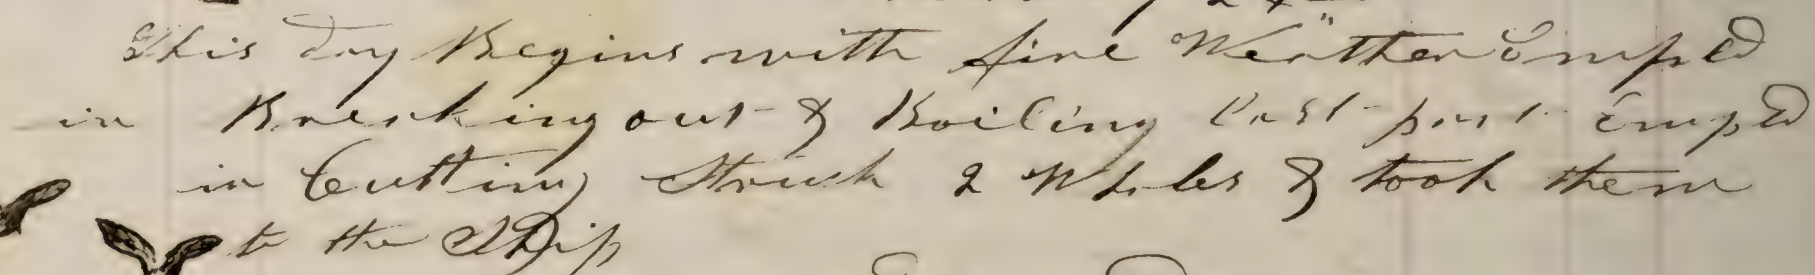 This day Begins with fine Weather Empd
in Breaking out & Boiling last part Empd
in Cutting Struck 2 Whales & took them
to the Ship